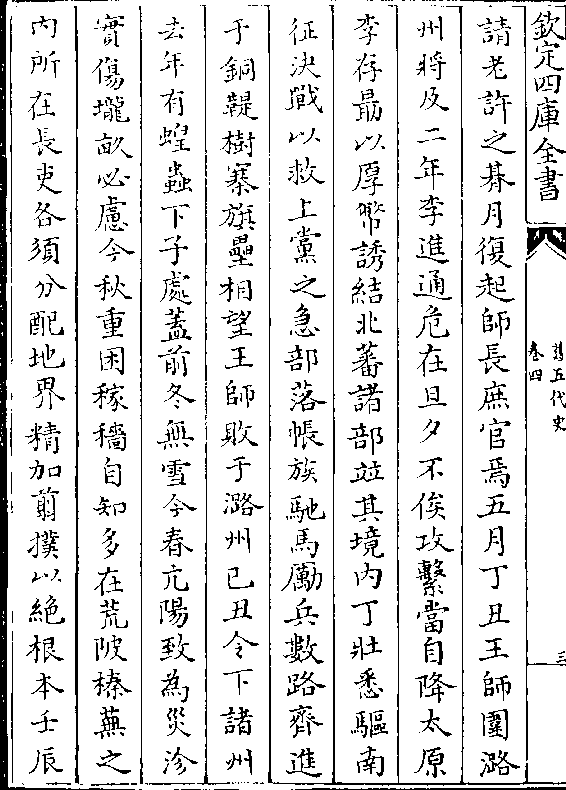 欽定四庫全書
舊五代史
卷四
三
請老許之朞月復起師長庶官焉五月丁丑王師圍潞
州將及二年李進通危在旦夕不俟攻擊當自降太原
李存勗以厚幣誘結北蕃諸部竝其境内丁壯悉驅南
征決戰以救上黨之急部落帳族馳馬勵兵數路齊進
于銅鞮樹寨旗壘相望王師敗于潞州己丑令下諸州
去年有蝗蟲下子處蓋前冬無雪今春亢陽致為災沴
實傷壠畝必慮今秋重困稼穡自知多在荒陂榛蕪之
内所在長吏各須分配地界精加翦撲以絶根本壬辰